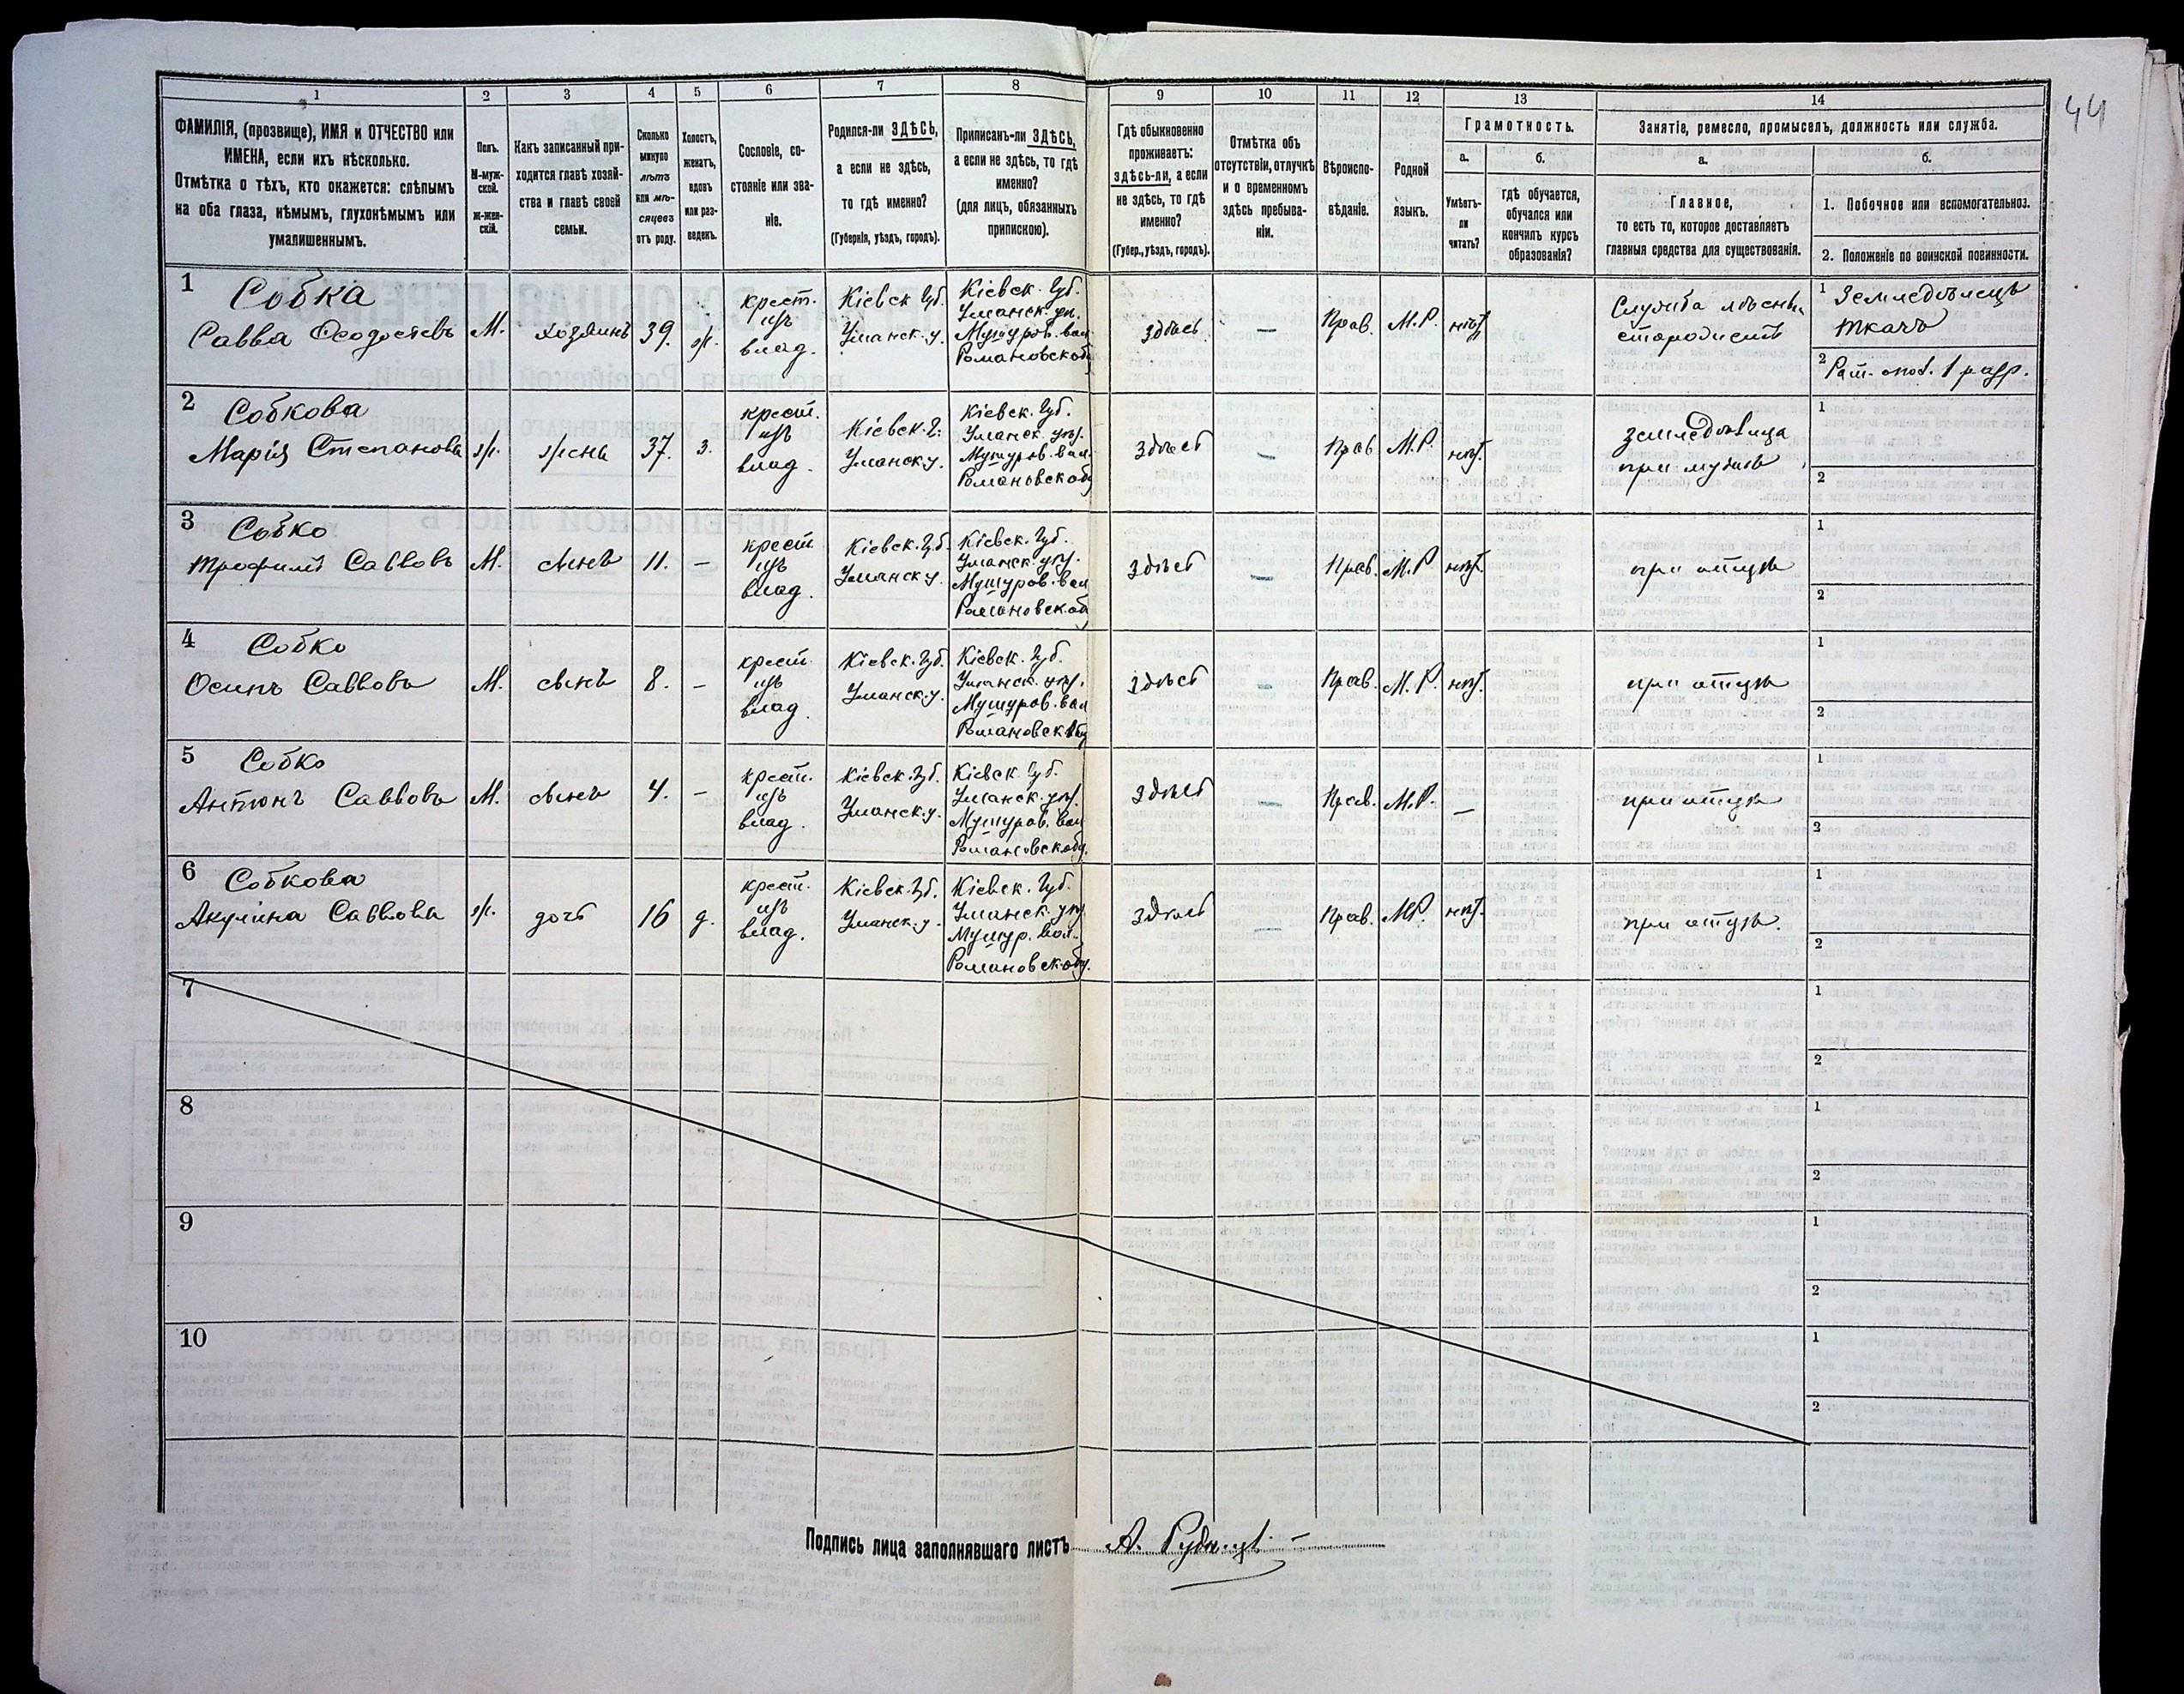 44
1 2 3 4 5 6 7 8 9 10 11 12 13 14
ФАМИЛІЯ, (прозвище), ИМЯ и ОТЧЕСТВО или
ИМЕНА, если ихъ нѣсколько.
Отмѣтка о тѣхъ, кто окажется: слѣпымъ
на оба глаза, нѣмымъ, глухонѣмымъ или
умалишеннымъ.
Полъ.
М-муж-
ской.
ж-жен-
скій.
Какъ записанный при-
ходится главѣ хозяй-
ства и главѣ своей
семьи.
Сколько
минуло
лѣтъ
или мѣ-
сяцевъ
отъ роду.
Холостъ,
женатъ,
вдовъ
или раз-
веденъ.
Сословіе, со-
стояніе или зва-
ніе.
Родился-ли ЗДѢСЬ,
а если не здѣсь,
то гдѣ именно?
(Губернія, уѣздъ, городъ).
Приписанъ-ли ЗДѢСЬ,
а если не здѣсь, то гдѣ
именно?
(для лицъ, обязанныхъ
припискою).
Гдѣ обыкновенно
проживаетъ:
здѣсь-ли, а если
не здѣсь, то гдѣ
именно?
(Губер., уѣздъ, городъ).
Отмѣтка объ
отсутствіи, отлучкѣ
и о временномъ
здѣсь пребыва-
ніи.
Вѣроиспо-
вѣданіе.
Родной
языкъ.
Грамотность.
а.
Умѣетъ-
ли
читать?
б.
гдѣ обучается,
обучался или
кончилъ курсъ
образованія?
Занятіе, ремесло, промыселъ, должность или служба.
а.
Главное,
то есть то, которое доставляетъ
главныя средства для существованія.
б.
1. Побочное или вспомогательное.
2. Положеніе по воинской повинности.
1 Собка
Савва Ѳеодосіевъ
М.
хозяинъ
39.
ж.
крест.
изъ
влад.
Кіевск. Губ.
Уманск. у.
Кіевск. Губ.
Уманск. уѣз.
Мушуров. вол.
Романовск. общ.
здѣсь
—
Прав.
М.Р.
нѣт.
Служба лѣсны.
сторожемъ
1 Земледѣлецъ
ткачъ
2 Рат. опол. 1 разр.
2 Собкова
Марія Степанова
ж.
жена
37.
з.
крест.
изъ
влад.
Кіевск. г.
Уманск. у.
Кіевск. Губ.
Уманск. уѣз.
Мушуров. вол.
Романовск. общ.
здѣсь
—
Прав
М.Р.
нѣт.
земледѣлица
при мужѣ
1
2
3 Собко
Трофимъ Саввовъ
М.
сынъ
11.
—
крест
изъ
влад.
Кіевск. Губ.
Уманск у.
Кіевск. Губ.
Уманск. уѣз.
Мушуров. вол
Романовск. общ
здѣсь
—
Прав.
М.Р
нѣт.
при отцѣ
1
2
4 Собко
Осипъ Саввовъ
М.
сынъ
8.
—
крест.
изъ
влад.
Кіевск. Губ.
Уманск. у.
Кіевск. Губ.
Уманск. уѣз.
Мушуров. вол
Романовск. общ
здѣсь
—
Прав.
М.Р.
нѣт.
при отцѣ
1
2
5 Собко
Антонъ Саввовъ
М.
сынъ
4.
—
крест.
изъ
влад.
Кіевск. Губ.
Уманск. у.
Кіевск. Губ.
Уманск. уѣз.
Мушуров. вол
Романовск. общ.
здѣсь
—
Прав.
М.Р.
—
при отцѣ
1
2
6 Собкова
Акулина Саввова
ж.
дочь
16
д.
крест.
изъ
влад.
Кіевск. Губ.
Уманск. у.
Кіевск. Губ.
Уманск. уѣз
Мушур. вол.
Романовск. общ.
здѣсь
—
Прав.
МР.
нѣт.
при отцѣ.
1
2
7
1
2
8
1
2
9
1
2
10
1
2
Подпись лица заполнявшаго листъ А.